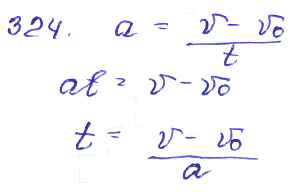 324. a = (v - v₀) / t
at = v - v₀
t = (v - v₀) / a